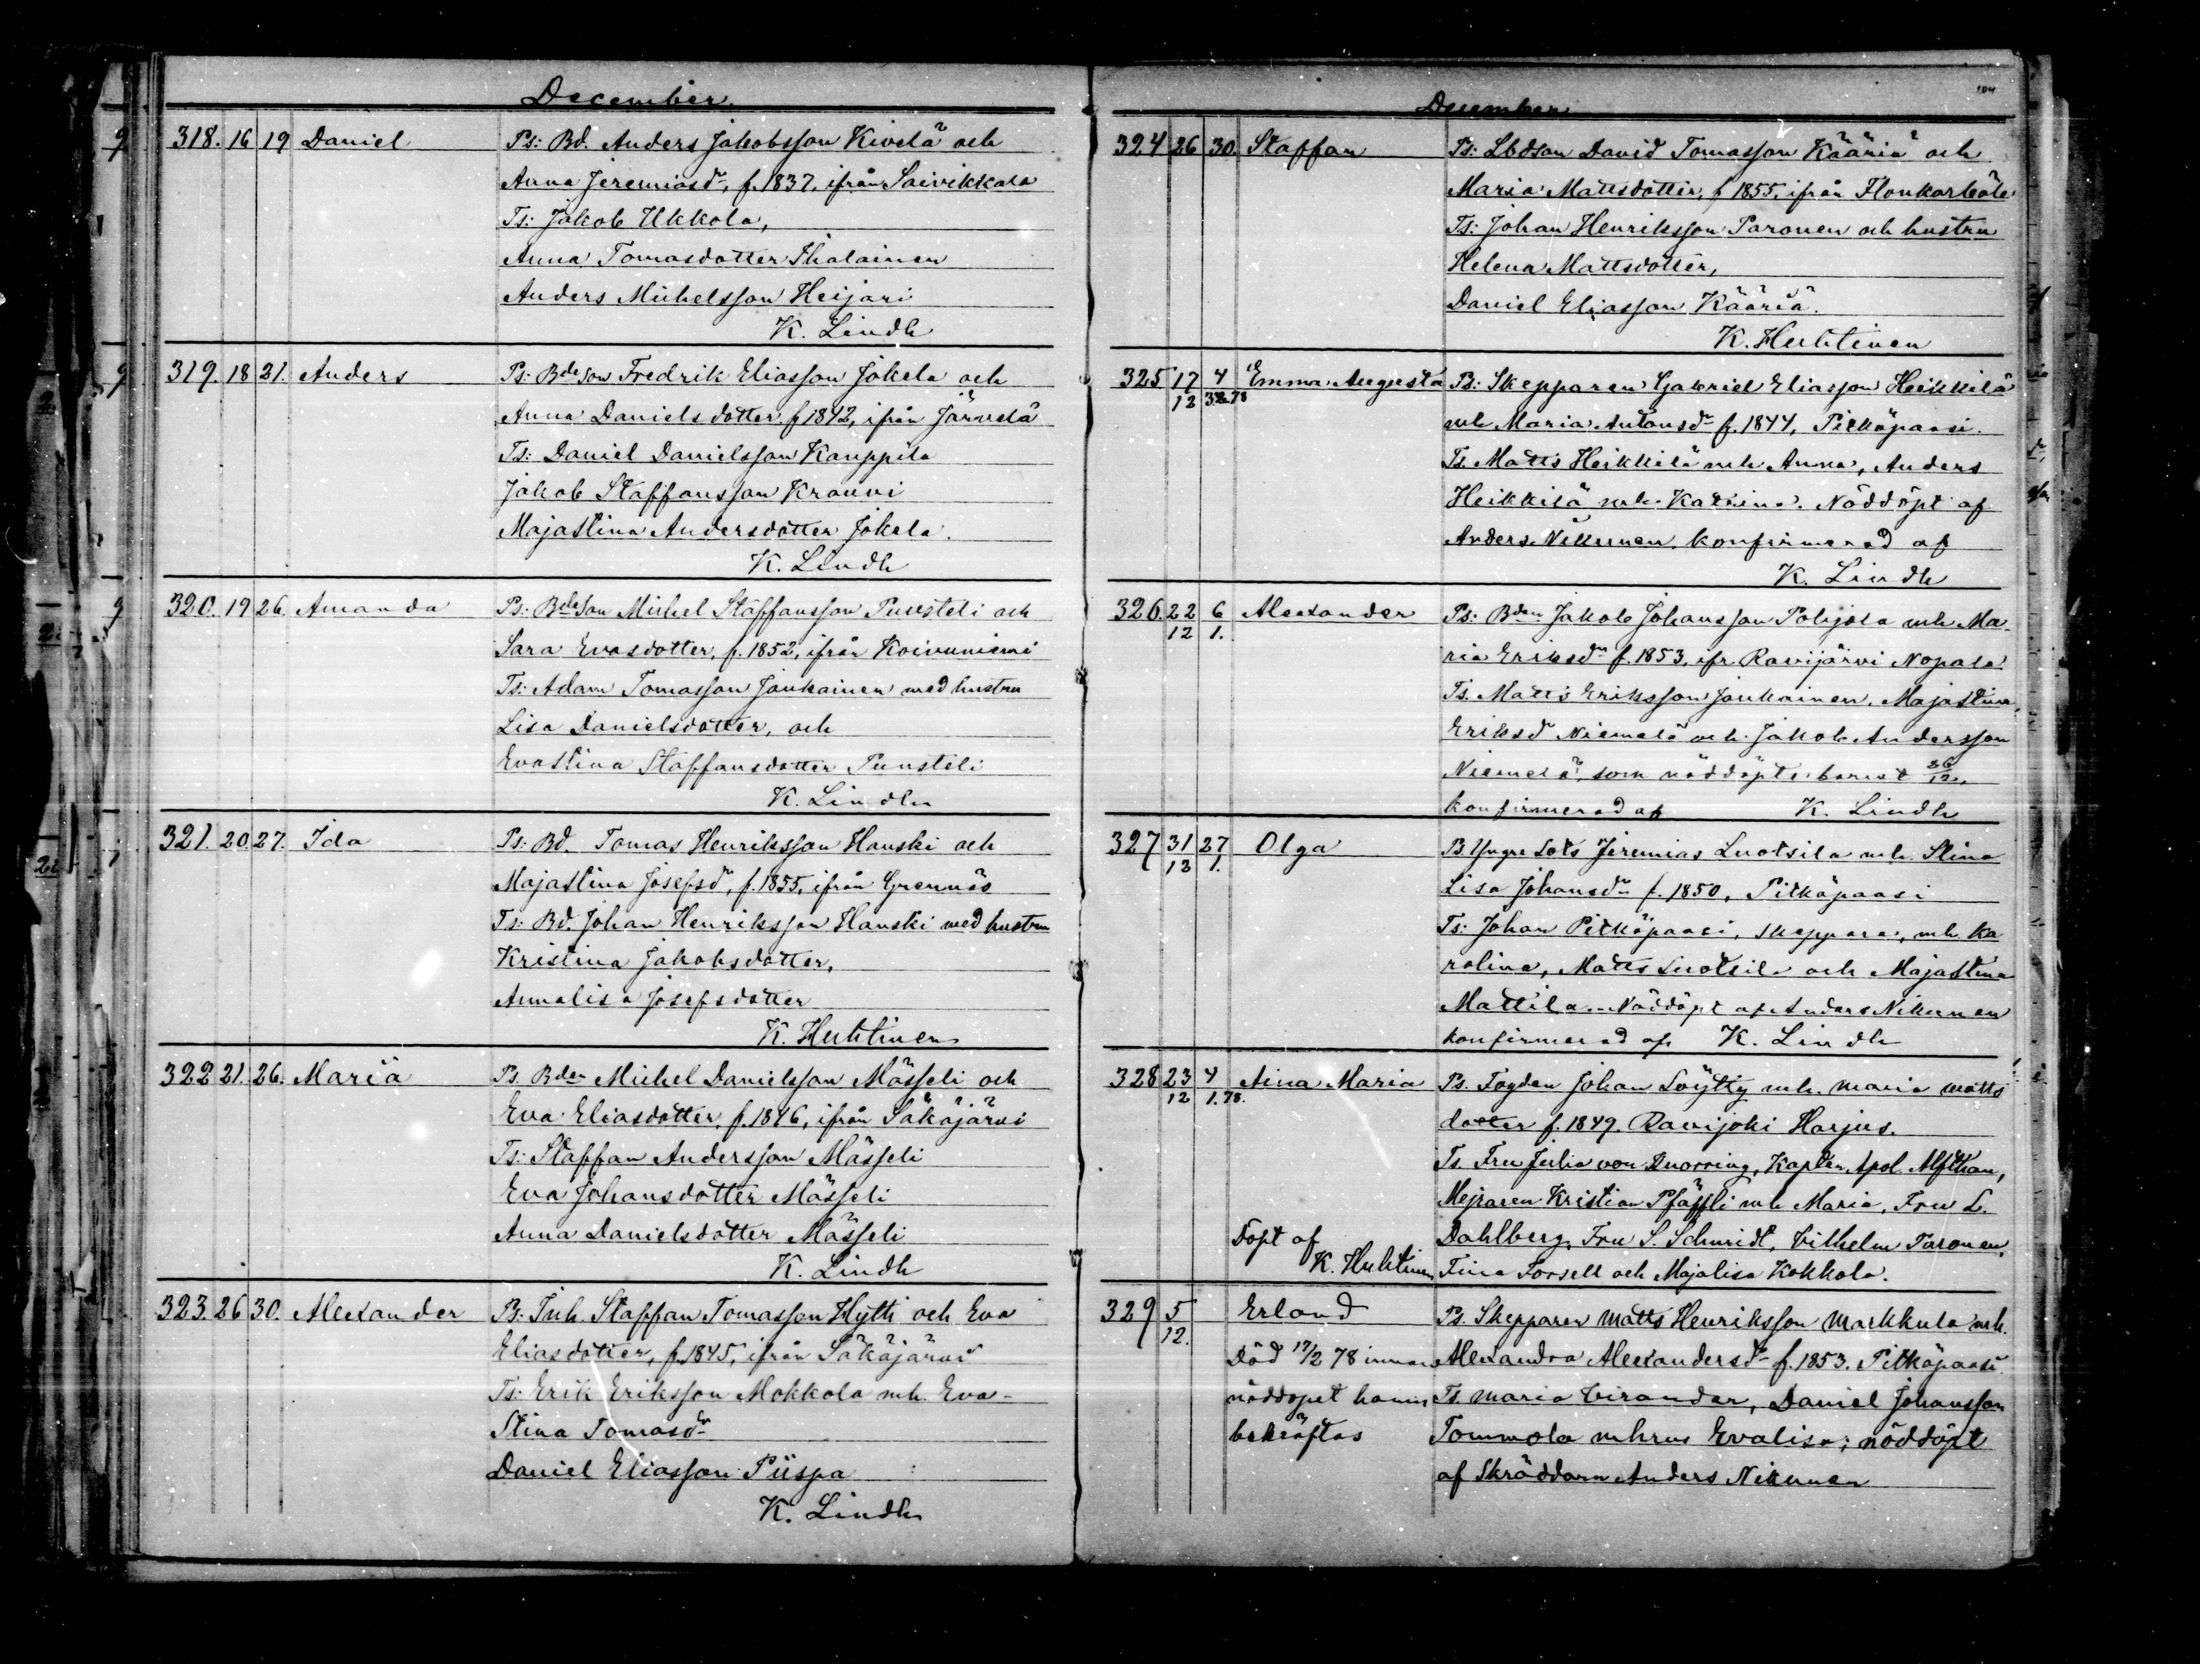 December.
318. 16 19 Daniel Ps: Bd. Anders Jakobsson Kivelä och
Anna Jeremiasdr, f. 1837, ifrån Saivikkala
Ts: Jakob Ukkola,
Anna Tomasdotter Ihalainen
Anders Michelsson Heijari
K. Lindh
319. 18 21. Anders Ps: Bdeson Fredrik Eliasson Jokela och
Anna Danielsdotter f 1842, ifrån Järvelä
Ts: Daniel Danielsson Kauppila
Jakob Staffansson Krouvi
Majastina Andersdotter Jokela.
K. Lindh
320. 19 26. Amanda Ps: Bdeson Michel Staffansson Puusteli och
Sara Evasdotter, f. 1852, ifrån Koivuniemi
Ts: Adam Tomasson Joukainen med hustru
Lisa Danielsdotter, och
Evastina Staffansdotter Puusteli
K. Lindh
321. 20. 27. Ida Ps: Bd. Tomas Henriksson Hanski och
Majastina Josefsdr, f. 1855, ifrån Grennäs
Ts: Bd. Johan Henriksson Hanski med hustru
Kristina Jakobsdotter,
Annalisa Josefsdotter
K. Huhtinen
322 21. 26. Maria Ps. Bden Michel Danielsson Mässeli och
Eva Eliasdotter, f. 1846, ifrån Säkäjärvi
Ts: Staffan Andersson Mässeli
Eva Johansdotter Mässeli
Anna Danielsdotter Mässeli
K. Lindh
323. 26 30. Alexander Ps: Inh. Staffan Tomasson Hytti och Eva
Eliasdotter, f. 1845, ifrån Säkäjärvi
Ts: Erik Eriksson Mokkola mh. Eva-
Stina Tomasdr
Daniel Eliasson Piispa
K. Lindh
104
December
324 26 30. Staffan Ps: Lbdson David Tomasson Kääriä och
Maria Mattsdotter, f 1855, ifrån
Ts: Johan Henriksson Paronen och hustru
Helena Mattsdotter,
Daniel Eliasson Kääriä.
K. Huhtinen
325 17/12 4 78 Emma Augusta Ps: Skepparen Gabriel Eliasson Heikkilä
mh Maria Antonsdr f. 1844, Pitkäpaasi.
Ts. Matts Heikkilä mh Anna, Anders
Heikkilä mh. Katrina. Nöddöpt af
Anders Nikunen. konfirmerad af
K. Lindh
326. 22/12 6/1. Alexander Ps: Bden Jakob Johansson Pohjola mh Ma-
ria Eriksdr f. 1853, ifr. Ravijärvi Nopala
Ts. Matts Eriksson Joukainen, Majastina
Eriksd Niemelä och Jakob Andersson
Niemelä, som nöddöpte barnet 26/12.
konfirmerad af K. Lindh
327 31/12 27/1. Olga Ps. Yngre Lots Jeremias Luotsila mh. Stina
Lisa Johansdr f. 1850, Pitkäpaasi
Ts: Johan Pitkäpaasi, skeppare, mh Ka
rolina, Matts Luotsila och Majastina
Mattila. Nöddöpt af Anders Nikunen
konfirmerad af K. Lindh
328 23/12 4/1. 78. Aina Maria Ps. Fogden Johan Löytty mh. Maria Matts
dotter f. 1849. Ravijoki Harjus.
Ts. Fru Julia von Knorring, Kapten Apol. Alfthan,
Mejraren Kristian Pfäffli mh Maria, Fru L.
Döpt af K. Huhtinen Dahlberg, Fru S. Schmidt, Vilhelm Paronen,
Fina Forsell och Majalisa Kokkola.
329 5/12. Erland Ps. Skepparen Matts Henriksson Markkula mh.
Död 17/2 78 innan Alexandra Alexandersdr f. 1853. Pitkäpaasi
nöddopet hann Ts. Maria Cirander, Daniel Johansson
bekräftas Tommola mhru Evalisa; nöddöpt
af Skräddaren Anders Nikunen